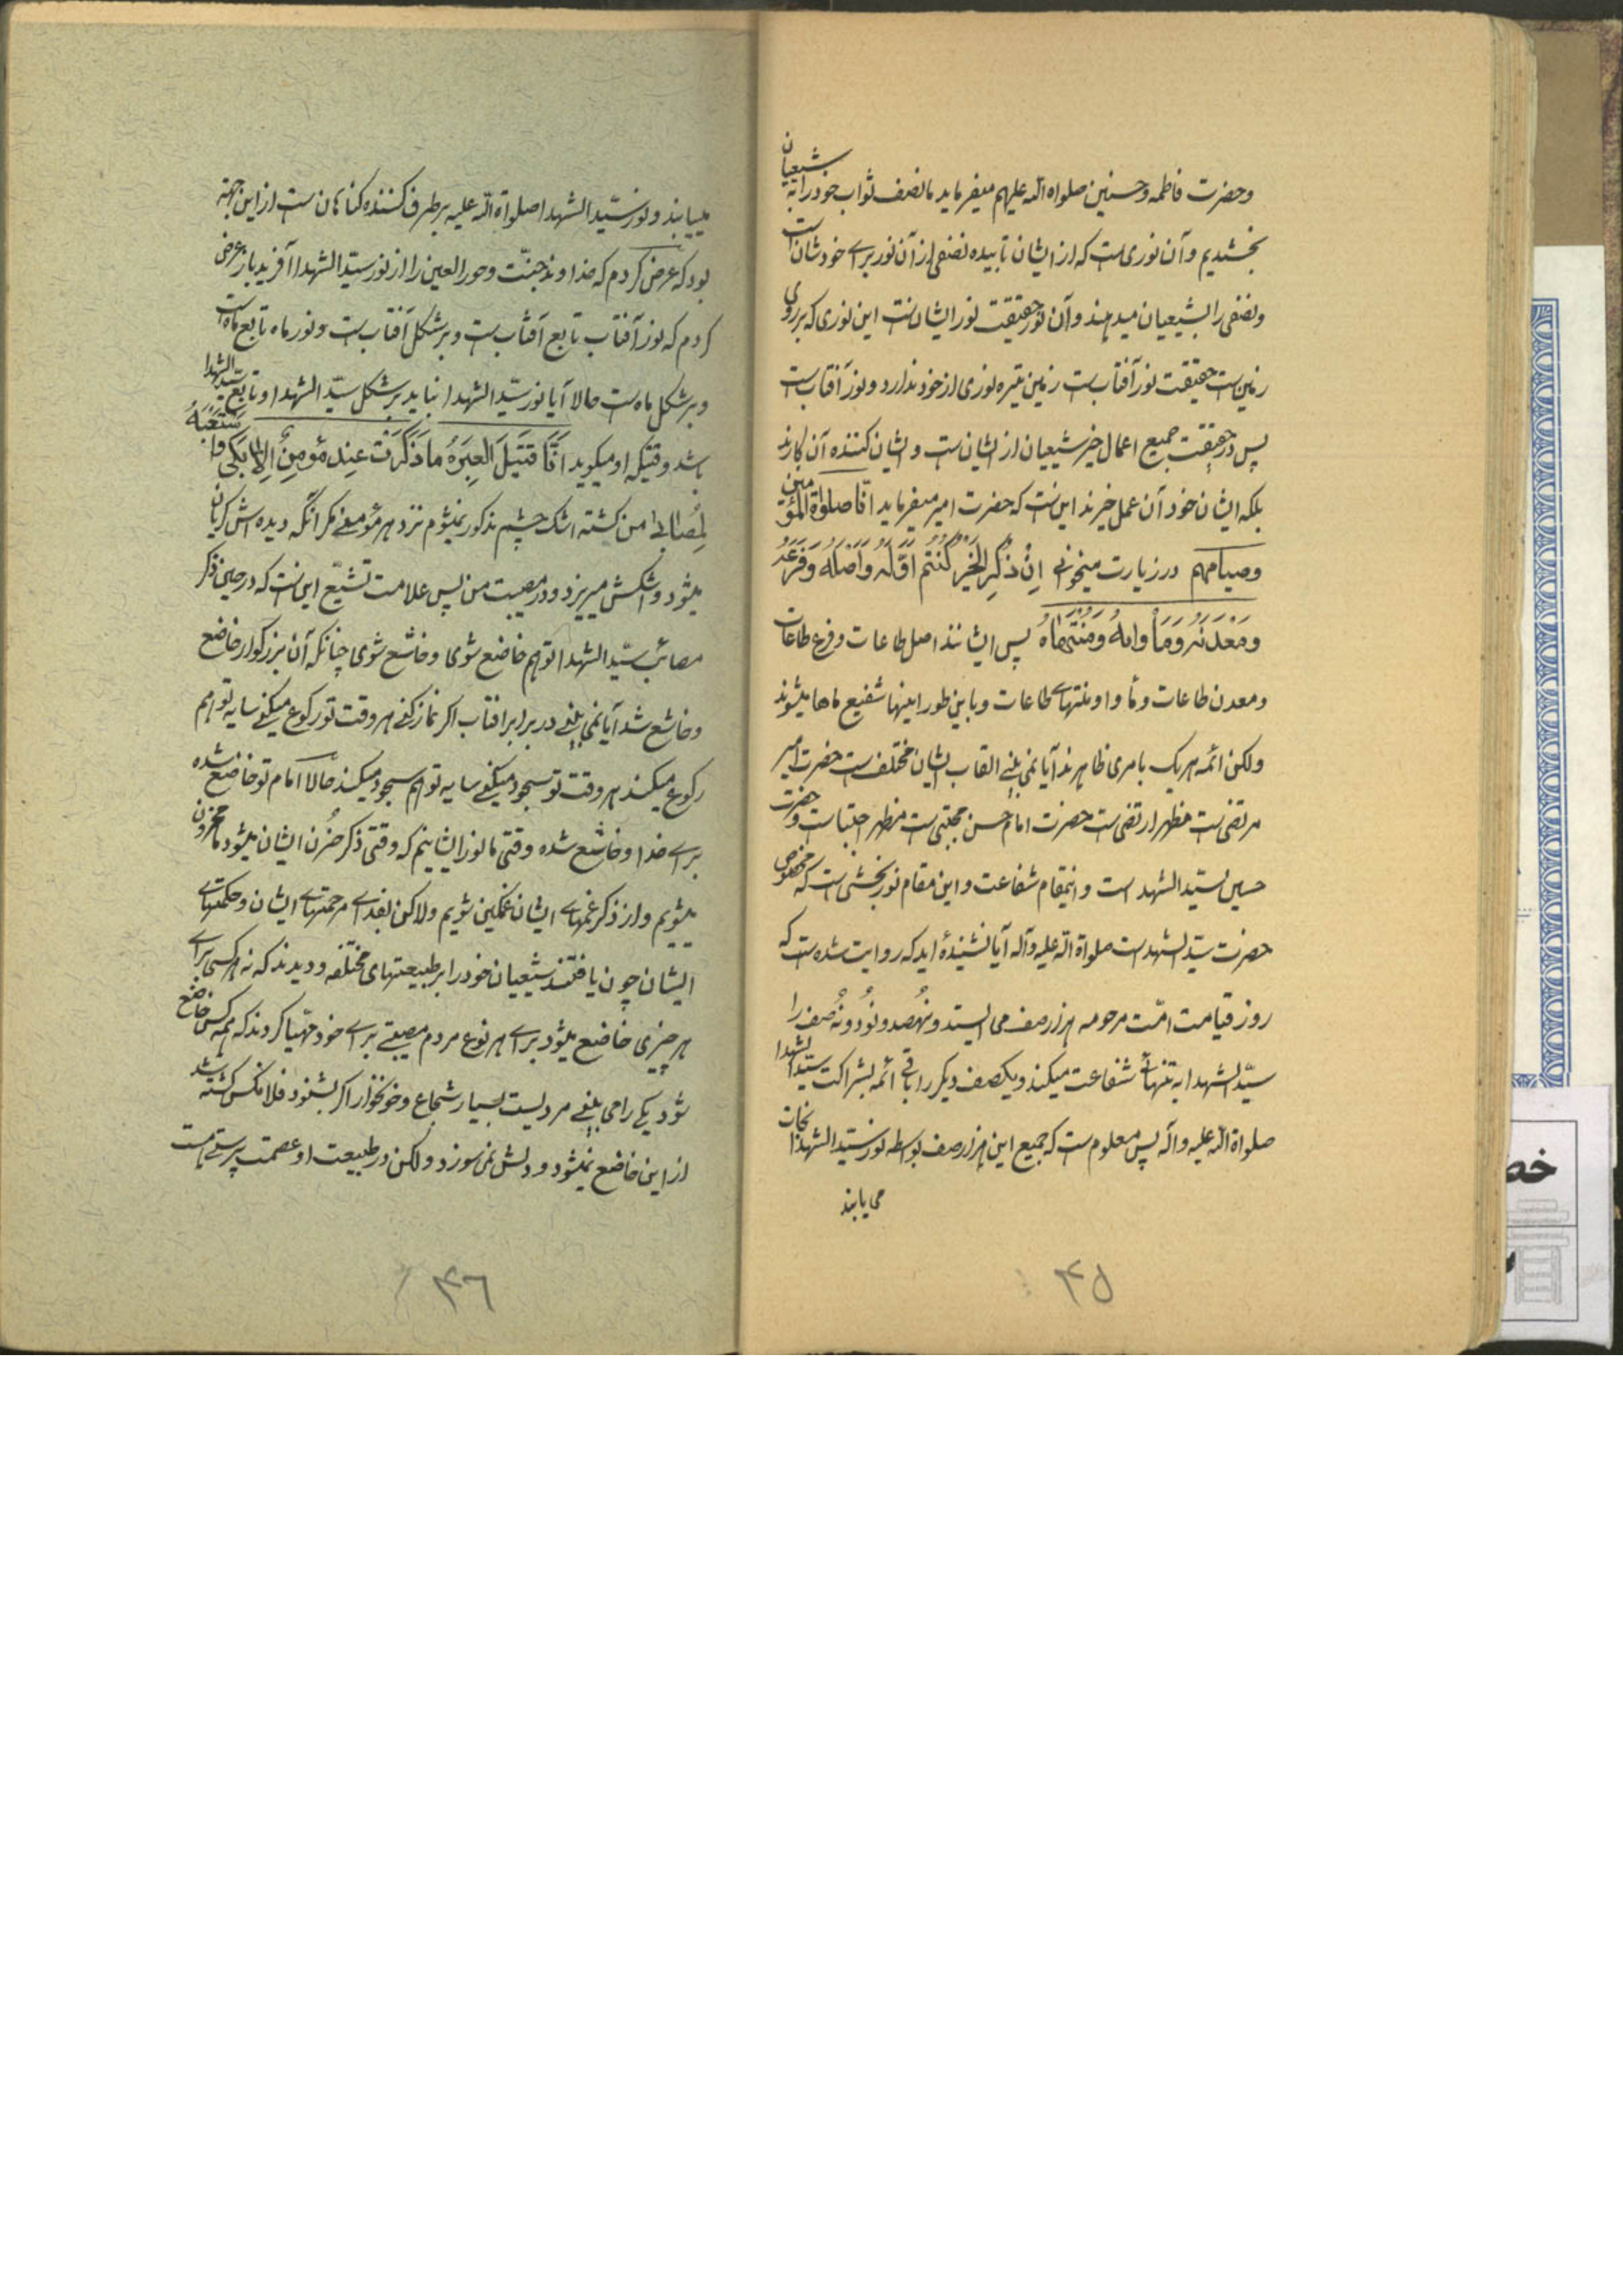 وحضرت فاطمه وحسنین صلواة الله علیهم میفرماید ما نصف ثواب خود را به شیعیان
بخشیدیم و آن نوری است که از ایشان تابیده نصفی از آن نور برای خودشان است
ونصفی را بشیعیان میدهند و آن نور حقیقت نور ایشانست این نوری که بر روی
زمین است حقیقت نور آفتاب است زمین تیره نوری از خود ندارد و نور آفتاب است
پس در حقیقت جمیع اعمال خیر شیعیان از ایشان است و ایشان کننده آن کارند
بلکه ایشان خود آن عمل خیرند این است که حضرت امیر میفرماید انا صلواة المؤمنین
وصیامهم در زیارت میخوانی اِنْ ذُکِرَ الخَیْرُ کُنْتُم اَوَّلَهُ وَاَصْلَهُ وَفَرْعَهُ
وَمَعْدَنَهُ وَمَأْواهُ وَمُنْتَهاهُ پس ایشانند اصل طاعات و فرع طاعات
ومعدن طاعات و مأوا و منتهای طاعات و باین طور اینها شفیع ماها میشوند
ولکن ائمه هر یک بامری ظاهرند آیا نمی بینی القاب ایشان مختلف است حضرت امیر
مرتضی است مظهر ارتضی است حضرت امام حسن مجتبی است مظهر اجتبا است و حضرت
حسین سید الشهد است و اینمقام شفاعت و این مقام نور بخشی است که مخصوص
حضرت سید الشهد است صلواة الله علیه وآله آیا نشنیدهٔ اید که روایت شده است که
روز قیامت امّت مرحومه هزار صف می ایستد و نُهصد و نَوَد و نُه صف را
سیّد الشهدا به تنهائی شفاعت میکند و یکصف دیگر را باقی ائمه بشراکت سید الشهدا
صلواة الله علیه وآله پس معلوم است که جمیع این هزار صف بواسطه نور سید الشهدا نجات
می یابند
۴۵
مییابند و نور سیّد الشهدا صلواة الله علیه برطرف کننده گناهان است از این جهة
بود که عرض کردم که خداوند جنّت و حور العین را از نور سیّد الشهدا آفرید باز عرض
کردم که نور آفتاب تابع آفتاب است و بر شکل آفتاب است و نور ماه تابع ماه است
وبر شکل ماه است حالا آیا نور سیّد الشهدا نباید بر شکل سیّد الشهدا و تابع سید الشهدا
باشد وقتیکه او میگوید اَنَا قَتیلُ العَبْرَةِ ما ذُکِرْتُ عِنْدَ مُؤمِنٍ اِلا بَکی وَا
لِمُصابی من کشته اشک چشم مذکور نمیشوم نزد هر مؤمنی مگر انکه دیده اش گریان
میشود و اشکش میریزد و در مصیبت من پس علامت تشیّع این است که در حین ذکر
مصائب سیّد الشهدا تو هم خاضع شوی و خاشع شوی چنانکه آن بزرگوار خاضع
وخاشع شد آیا نمی بینی در برابر افتاب اگر نماز کنی هر وقت تو رکوع میکنی سایه تو هم
رکوع میکند هر وقت تو سجود میکنی سایه تو هم سجود میکند حالا امام تو خاضع شده
برای خدا و خاشع شده وقتی ما نور ایشانیم که وقتی ذکر حُزن ایشان میشود ما محزون
میشویم و از ذکر غمهای ایشان غمگین شویم ولاکن بفدای مرحمتهای ایشان و حکمتهای
ایشان چون یافتند شیعیان خود را بر طبیعتهای مختلفه و دیدند که نه هر کسی برای
هر چیزی خاضع میشود برای هر نوع مردم مصیبتی برای خود مهیّا کردند که همه کس خاضع
شود یکی را می بینی مردیست بسیار شجاع و خونخوار اگر بشنود فلانکس کشته شد
از این خاضع نمیشود و دلش نمی سوزد ولکن در طبیعت او عصمت پرستی هست
۴۶
خص